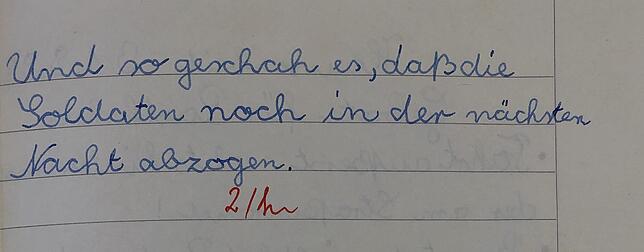 Und so geschah es, daß die
Soldaten noch in der nächsten
Nacht abzogen.
2/hr